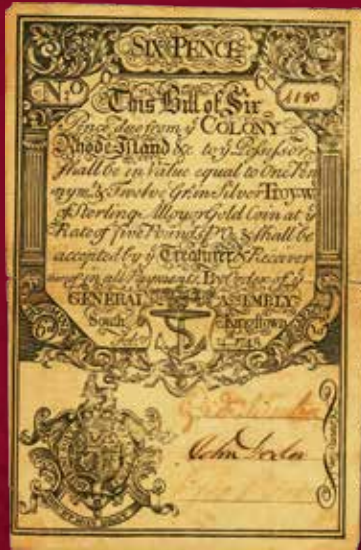 SIX PENCE
No 1180
This Bill of Six
Pence due from ye COLONY of
Rhode Island &c to ye Possessor
shall be in Value equal to One Pen
nywt & Twelve Gr in Silver Troy-Wt
of Sterling Alloy or Gold Coin at ye
Rate of Five Pounds pr Oz & shall be
accepted by ye Treasurer & Receiver
in all Payments By Order of ye
GENERAL ASSEMBLY
South Kingstown
6d
John